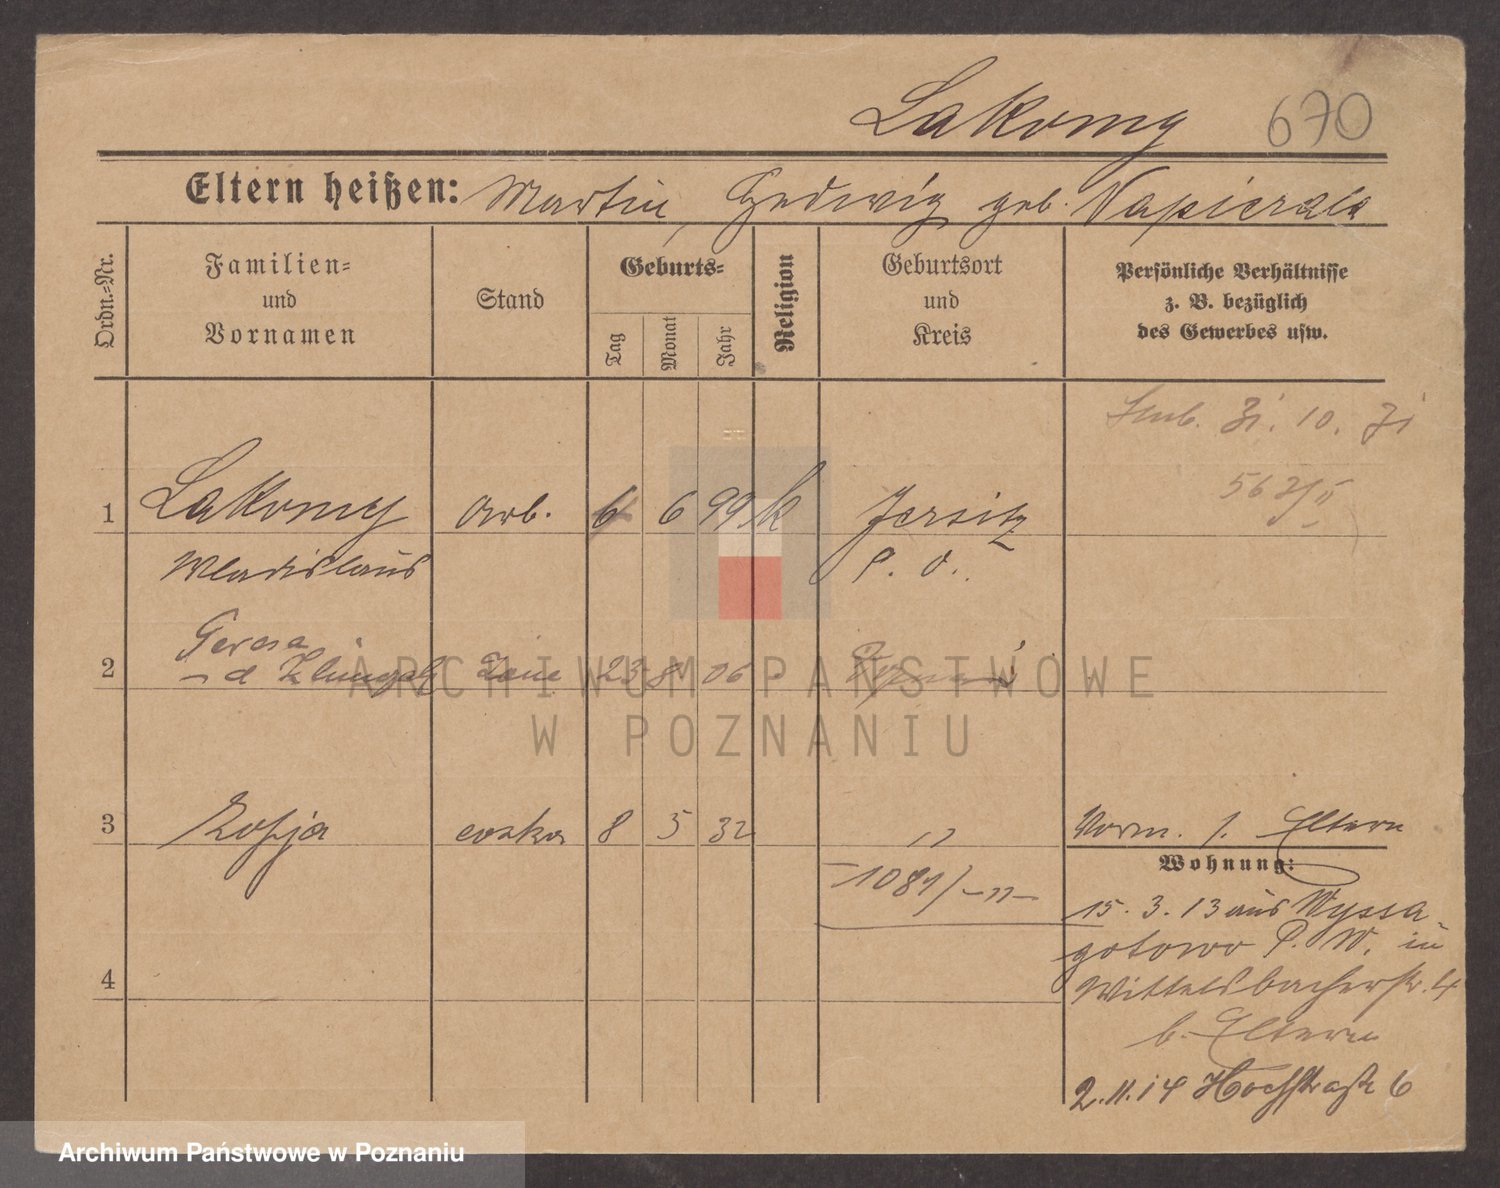 Lakomy 670
Eltern heißen: Martin, Hedwig geb. Napierala
Ordn.-Nr.
Familien-
und
Vornamen
Stand
Geburts-
Tag
Monat
Jahr
Religion
Geburtsort
und
Kreis
Persönliche Verhältnisse
z. B. bezüglich
des Gewerbes usw.
10.
562/II
1 Lakomy Arb. 6 6 99 k Jersitz
Wladislaus P. O.
Teresa
2 żona 23 8 06
3 Zofja córka 8 5 32 " Vorm. s. Eltern
Wohnung:
1081/-"-
15. 3. 13 aus Wyssa-
gotowo P. W. in
Wittelsbacherstr. 4
b. Eltern
4
2.11.14 Hochstraße 6
ARCHIWUM PAŃSTWOWE
W POZNANIU
Archiwum Państwowe w Poznaniu